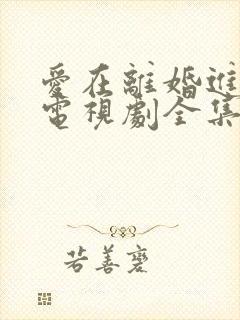 愛在離婚進
電視劇全集
若善麐